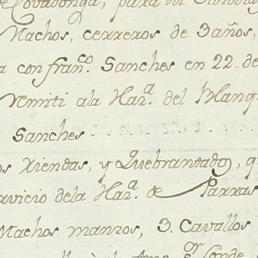 Covadonga, para su
Machos, cerreros de 3 años,
a con fran.co Sanches en 22. de
remiti ala Har.a del Blanq
Sanches
os Riendas, y Quebrantado, q
ervicio dela Har.a de Parras
Machos manzos, 3. Cavallos
Conde